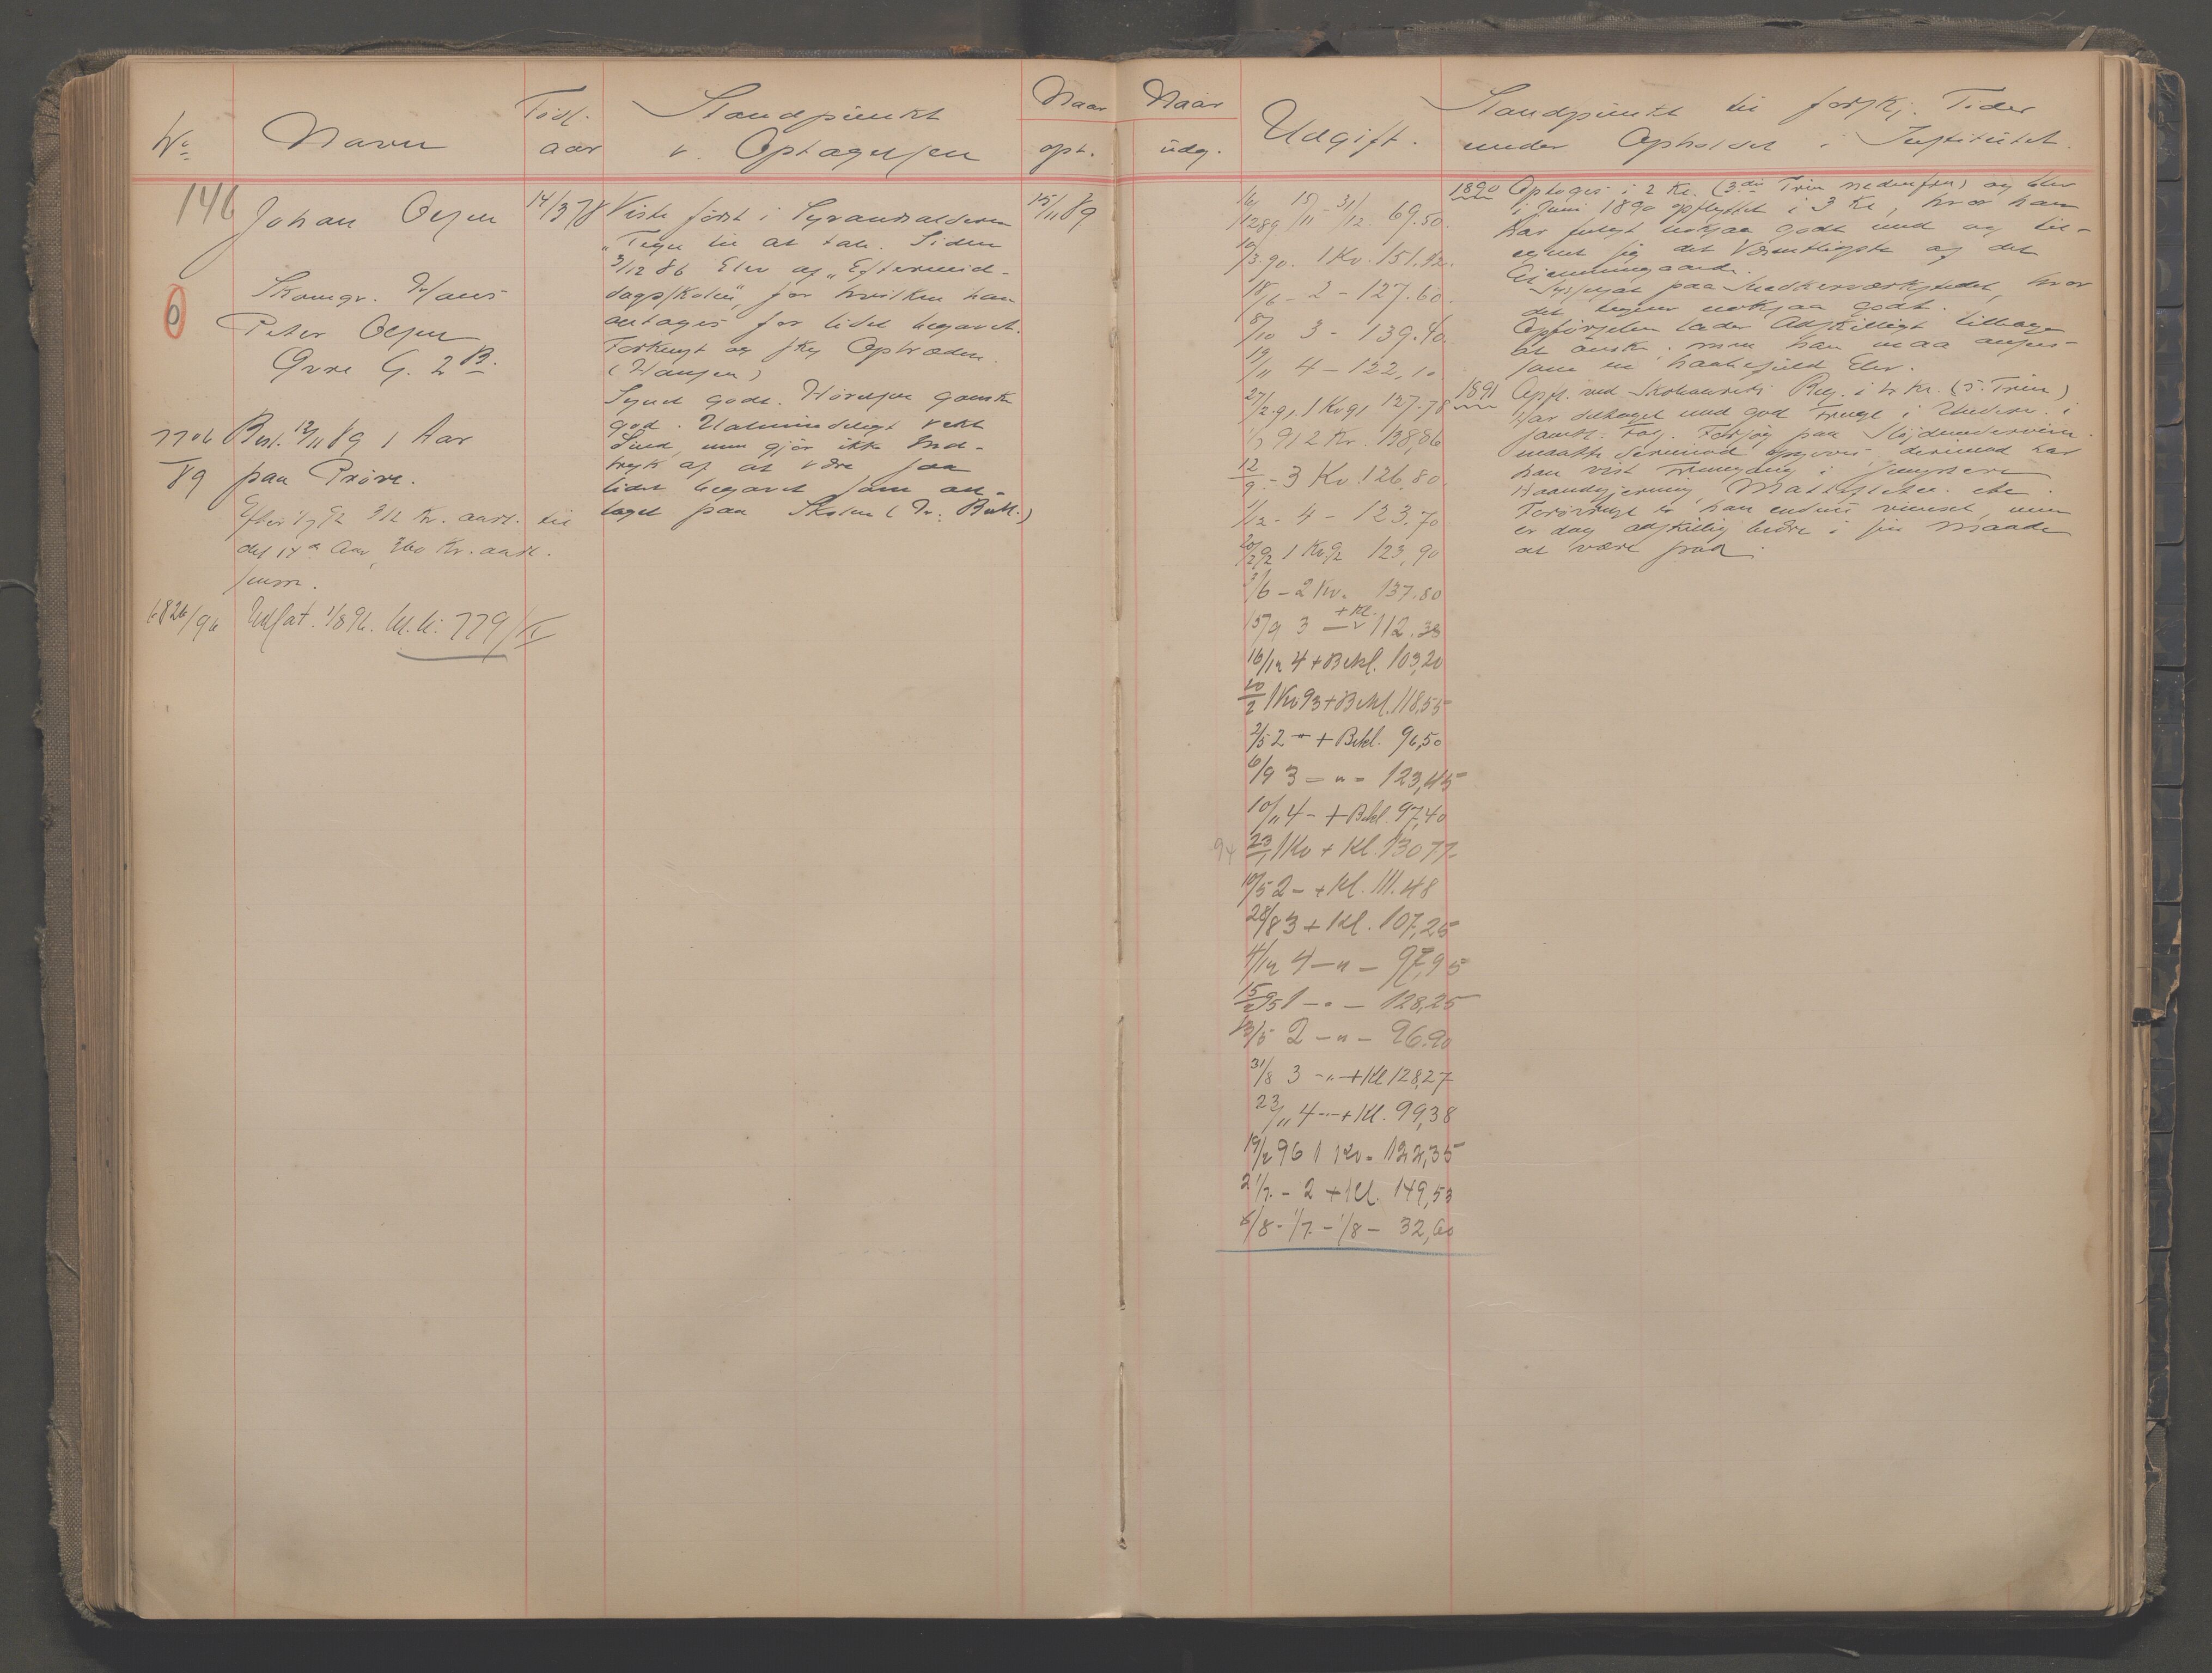 No
Navn
Född.
aar
Standpunkt
v. Optagelsen
Naar
opt.
146
Johan Olsen
14/3 78
15/11 89
Viste først i Syvaarsalderen
"Tegn til at tale. Siden
3/12 86 Elev af "Eftermid-
dagsskolen", for hvilken han
antages for lidet begavet.
Forknyt og sky Optræden.
(Hansen)
Synet godt. Hørelsen ganske
god. Ualmindeligt vekt
Sind, men gjør ikke Ind-
tryk af at være saa
lidet begavet som an-
taget paa Skolen (Dr. )
6
Skomgr. Hans
Peter Olsen
Øvre G. 2 B.
7706
/89
Besl. 12/11 89 1 Aar
paa Prøve.
Efter 1/7 92 312 Kr. aarl. til
det 17de Aar, 360 Kr. aarl.
6826/96
Udsat. 1/8 96. M. k: 779/
Naar
udg.
Udgift.
Standpunkt til forskj. Tider
under Opholdet i Institutet.
16/12 89 15/11 - 31/12 69.50.
10/3 90. 1 Kv. 151.12.
18/6 - 2 - 127.60.
8/10 3 - 139.40.
19/11 4 - 122.10
27/2 91. 1 Kv 91 127.78
91 2 Kv. 138,86
12/9 - 3 Kv. 126.80
1/12 - 4 - 123.70
20/2 92 1 Kv. 92 123,90
3/6 - 2 Kv. 137.80
15/9 3 - + Kl. 112.33
16/12 4 + Bekl. 103,20
20/2 1 Kv 93 + Bekl. 118,55
2/5 2 " + Bekl. 96,50
6/9 3 - " - 123,45
10/11 4 - + Bekl. 97,40
94 23/1 1 Kv + Kl. 130 77
10/5 2 - + Kl. 111.48
28/8 3 + Kl. 107,25
4/12 4 - " - 97,95
15/2 95 1 - " - 128,25
13/5 2 - " - 96.90
31/8 3 - " + Kl 128,27
23/11 4 - " + Kl. 99,38
19/2 96 1 Kv. - 122,35
21/7. - 2 + Kl. 149,53
6/8 - 1/7. - 1/8 - 32,60
1890 Optoges i 2 Kl. (3die Trin nedenfra) og blev
i Juni 1890 opflyttet i 3 Kl, hvor han
har fulgt noksaa godt med og til-
egnet sig det Væsentligste af det
Gjennemgaaede.
Sysselsat paa Snedkerværkstedet, hvor
det begyn noksaa godt.
Opførselen lader Adskilligt tilbage
at ønske; men han maa ansees
som en haabefuld Elev.
1891 Opfl. ved Skoleaarets Beg. i 4 Kl. (5. Trin)
Har deltaget med god Frugt i Underv. i
samtl. Fag. Forsøg paa Sløjdundervisn.
maatte derimod opgives; derimod har
han vist Fremgang i
Haandgjerning, Mattefletn. etc.
Forknyt er han endnu, men
er dog adskillig bedre i sin Maade
at være paa.